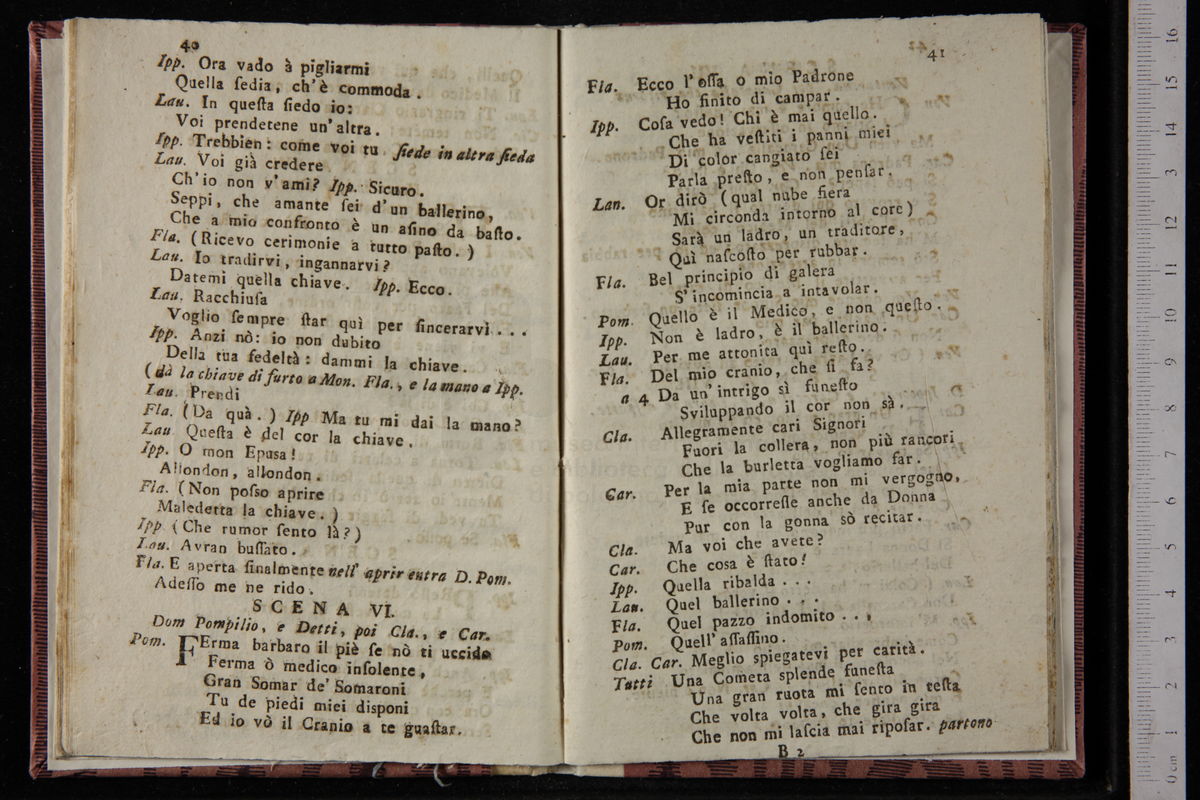 40
Ipp. Ora vado à pigliarmi
Quella ſedia, ch'è commoda.
Lau. In queſta ſiedo io:
Voi prendetene un'altra.
Ipp. Trebbien: come voi tu ſiede in altra ſieda
Lau. Voi già credere
Ch'io non v'ami? Ipp. Sicuro.
Seppi, che amante ſei d'un ballerino,
Che a mio confronto è un aſino da baſto.
Fla. (Ricevo cerimonie a tutto paſto. )
Lau. Io tradirvi, ingannarvi?
Datemi quella chiave. Ipp. Ecco.
Lau. Racchiuſa
Voglio ſempre ſtar quì per ſincerarvi...
Ipp. Anzi nò: io non dubito
Della tua fedeltà: dammi la chiave.
(dà la chiave di furto a Mon. Fla., e la mano a Ipp.
Lau. Prendi
Fla. (Da quà. ) Ipp Ma tu mi dai la mano?
Lau Queſta è del cor la chiave.
Ipp. O mon Epusa!
Allondon, allondon.
Fla. (Non poſso aprire
Maledetta la chiave. )
Ipp (Che rumor ſento là?)
Lau. Avran buſſato.
Fla. E aperta finalmente nell' aprir entra D. Pom.
Adeſſo me ne rido.
SCENA VI.
Dom Pompilio, e Detti, poi Cla., e Car.
Pom. FErma barbaro il piè ſe nò ti uccido
Ferma ò medico inſolente,
Gran Somar de' Somaroni
Tu de piedi miei disponi
Ed io vò il Cranio a te guaſtar.
41
Fla. Ecco l'oſſa o mio Padrone
Ho finito di campar.
Ipp. Coſa vedo! Chi è mai quello.
Che ha veſtiti i panni miei
Di color cangiato ſei
Parla preſto, e non penſar.
Lan. Or dirò (qual nube fiera
Mi circonda intorno al core)
Sarà un ladro, un traditore,
Quì naſcoſto per rubbar.
Fla. Bel principio di galera
S'incomincia a intavolar.
Pom. Quello è il Medico, e non queſto.
Ipp. Non è ladro, è il ballerino.
Lau. Per me attonita quì reſto.
Fla. Del mio cranio, che ſi fa?
a 4 Da un'intrigo sì funeſto
Sviluppando il cor non sà.
Cla. Allegramente cari Signori
Fuori la collera, non più rancori
Che la burletta vogliamo far.
Car. Per la mia parte non mi vergogno,
E ſe occorreſſe anche da Donna
Pur con la gonna sò recitar.
Cla. Ma voi che avete?
Car. Che coſa è ſtato!
Ipp. Quella ribalda...
Lau. Quel ballerino...
Fla. Quel pazzo indomito...
Pom. Quell'aſſaſſino.
Cla. Car. Meglio spiegatevi per carità.
Tutti Una Cometa splende funeſta
Una gran ruota mi ſento in teſta
Che volta volta, che gira gira
Che non mi laſcia mai ripoſar. partono
B 2
0 cm 1 2 3 4 5 6 7 8 9 10 11 12 13 14 15 16